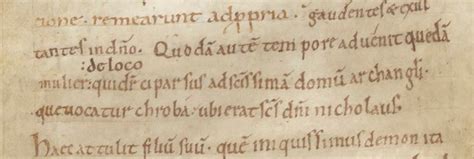 tione. remearunt adppria. gaudentes & exul
tantes in dño. Quodã autẽ tempore advenit quedã
de loco
mulier: quidẽ ci par sus ad scissimã domũ archangli.
que vocatur chroba. ubi erat scs dñi nicholaus.
Haec attulit filiũ suũ. quẽ iniquissimus demon ita